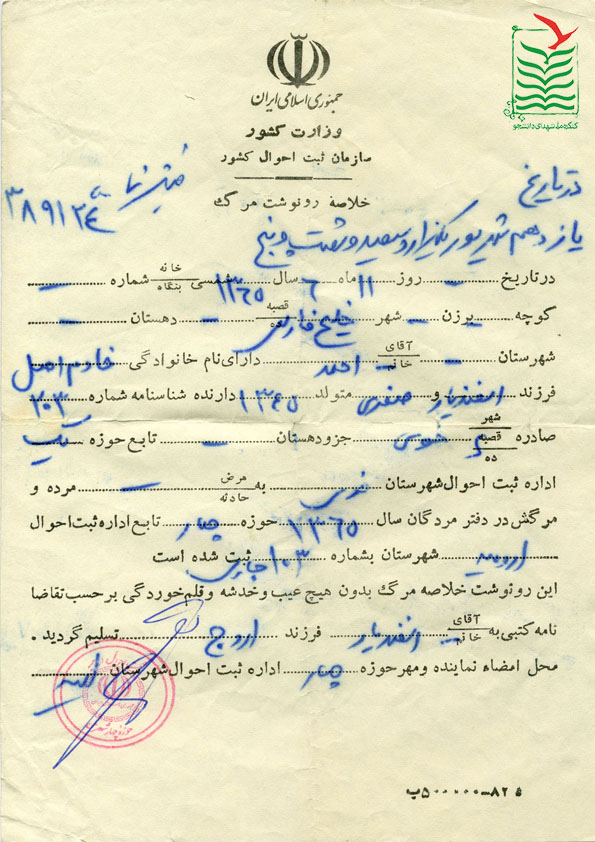 کنگره ملی شهدای دانشجو
جمهوری اسلامی ایران
وزارت کشور
سازمان ثبت احوال کشور
خلاصه رونوشت مرگ
۳۸۹۱۲۴
در تاریخ
یازدهم شهریور یکهزار و سیصد و شصت و پنج
در تاریخ ـ روز ۱۱ ماه ۶ سال ۱۳۶۵ شمسی خانه بنگاه شماره ـ
کوچه ـ برزن ـ شهر قصبه ده خلیج فارس ـ دهستان ـ
شهرستان ـ آقای خانم احمد دارای نام خانوادگی خادم اصل
فرزند اسفندیار و صغری متولد ۱۳۴۵ دارنده شناسنامه شماره ۲۰۳
صادره شهر قصبه ده خوی جزو دهستان ـ تابع حوزه یک
اداره ثبت احوال شهرستان خوی به مرض حادثه ـ مرده و
مرگش در دفتر مردگان سال ۱۳۶۵ حوزه چهار تابع اداره ثبت احوال
ارومیه شهرستان بشماره ۱۰۳ جاری ثبت شده است
این رونوشت خلاصه مرگ بدون هیچ عیب و خدشه و قلم خوردگی بر حسب تقاضا
نامه کتبی به آقای خانم اسفندیار فرزند اروج تسلیم گردید .
محل امضاء نماینده و مهر حوزه چهار اداره ثبت احوال شهرستان ارومیه
۸۲ـ۵۰۰۰۰۰۰ب